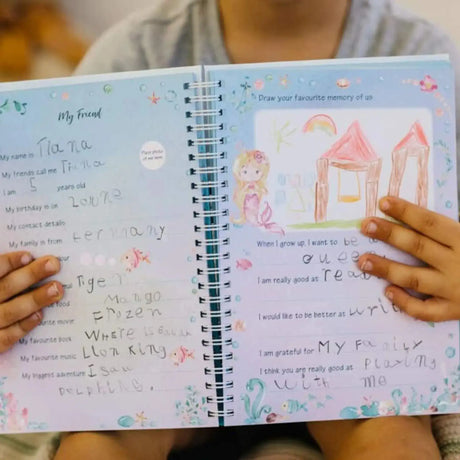 My Friend
My name is Tiana
My friends call me Tiana
Place photo of me here
I am 5 years old
My birthday is in June
My contact details
My family is from Germany
colour
Tiger
food Mango
favourite movie Frozen
My favourite book Where is
My favourite music Lion King
My biggest adventure I saw
Dolphins.
Draw your favourite memory of us
When I grow up, I want to be a
queen
I am really good at rea
I would like to be better at writ
I am grateful for My Family
I think you are really good at Playing
with me